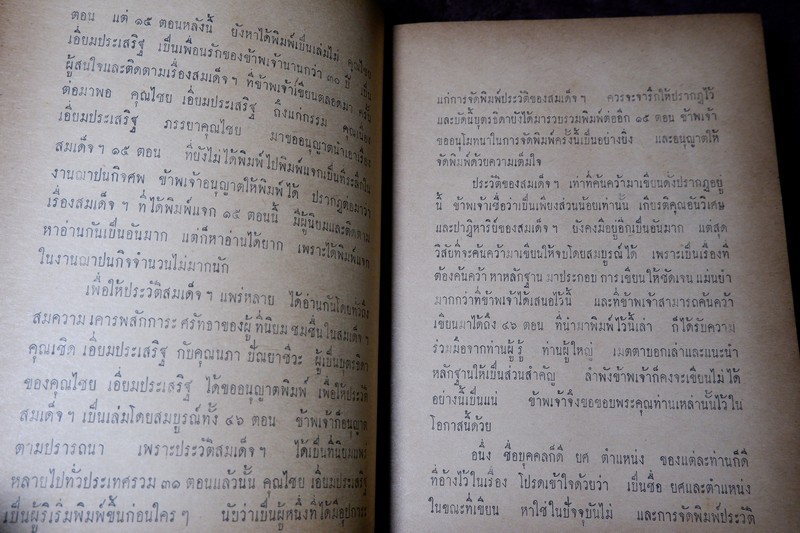 ตอน แต่ ๑๕ ตอนหลังนี้ ยังหาได้พิมพ์เป็นเล่มไม่ คุณไชย
เอี่ยมประเสริฐ เป็นเพื่อนรักของข้าพเจ้านานกว่า ๓๐ ปี เป็น
ผู้สนใจและติดตามเรื่องสมเด็จฯ ที่ข้าพเจ้าเขียนตลอดมา ครั้น
ต่อมาพอ คุณไชย เอี่ยมประเสริฐ ถึงแก่กรรม คุณเนื่อง
เอี่ยมประเสริฐ ภรรยาคุณไชย มาขออนุญาตนำเอาเรื่อง
สมเด็จฯ ๑๕ ตอน ที่ยังไม่ได้พิมพ์ไปพิมพ์แจกเป็นที่ระลึกใน
งานฌาปนกิจศพ ข้าพเจ้าอนุญาตให้พิมพ์ได้ ปรากฏต่อมาว่า
เรื่องสมเด็จฯ ที่ได้พิมพ์แจก ๑๕ ตอนนี้ มีผู้นิยมและติดตาม
หาอ่านกันเป็นอันมาก แต่ก็หาอ่านได้ยาก เพราะได้พิมพ์แจก
ในงานฌาปนกิจจำนวนไม่มากนัก
เพื่อให้ประวัติสมเด็จฯ แพร่หลาย ได้อ่านกันโดยทั่วถึง
สมความเคารพสักการะ ศรัทธาของผู้ที่นิยม ชมชื่นในสมเด็จฯ
คุณเชิด เอี่ยมประเสริฐ กับคุณนภา ปัณยาชีวะ ผู้เป็นบุตรธิดา
ของคุณไชย เอี่ยมประเสริฐ ได้ขออนุญาตพิมพ์ เพื่อให้ประวัติ
สมเด็จฯ เป็นเล่มโดยสมบูรณ์ทั้ง ๔๖ ตอน ข้าพเจ้าก็อนุญาต
ตามปรารถนา เพราะประวัติสมเด็จฯ ได้เป็นที่นิยมแพร่
หลายไปทั่วประเทศรวม ๓๑ ตอนแล้วนั้น คุณไชย เอี่ยมประเสริฐ
เป็นผู้ริเริ่มพิมพ์ขึ้นก่อนใครๆ นับว่าเป็นผู้หนึ่งที่ได้มีอุปการะ
แก่การจัดพิมพ์ประวัติของสมเด็จฯ ควรจะจารึกให้ปรากฏไว้
และบัดนี้บุตรธิดายังได้มารวบรวมพิมพ์ต่ออีก ๑๕ ตอน ข้าพเจ้า
ขออนุโมทนาในการจัดพิมพ์ครั้งนี้เป็นอย่างยิ่ง และอนุญาตให้
จัดพิมพ์ด้วยความเต็มใจ
ประวัติของสมเด็จฯ เท่าที่ค้นคว้ามาเขียนดังปรากฏอยู่
นี้ ข้าพเจ้าเชื่อว่าเป็นเพียงส่วนน้อยเท่านั้น เกียรติคุณอันวิเศษ
และปาฏิหาริย์ของสมเด็จฯ ยังคงมีอยู่อีกเป็นอันมาก แต่สุด
วิสัยที่จะค้นคว้ามาเขียนให้จบโดยสมบูรณ์ได้ เพราะเป็นเรื่องที่
ต้องค้นคว้า หาหลักฐาน มาประกอบ การเขียนให้ชัดเจน แม่นยำ
มากกว่าที่ข้าพเจ้าได้เสนอไว้นี้ และที่ข้าพเจ้าสามารถค้นคว้า
เขียนมาได้ถึง ๔๖ ตอน ที่นำมาพิมพ์ไว้นี้เล่า ก็ได้รับความ
ร่วมมือจากท่านผู้รู้ ท่านผู้ใหญ่ เมตตาบอกเล่าและแนะนำ
หลักฐานให้เป็นส่วนสำคัญ ลำพังข้าพเจ้าก็คงจะเขียนไม่ได้
อย่างนี้เป็นแน่ ข้าพเจ้าจึงขอขอบพระคุณท่านเหล่านั้นไว้ใน
โอกาสนี้ด้วย
อนึ่ง ชื่อบุคคลก็ดี ยศ ตำแหน่ง ของแต่ละท่านก็ดี
ที่อ้างไว้ในเรื่อง โปรดเข้าใจด้วยว่า เป็นชื่อ ยศและตำแหน่ง
ในขณะที่เขียน หาใช่ในปัจจุบันไม่ และการจัดพิมพ์ประวัติ